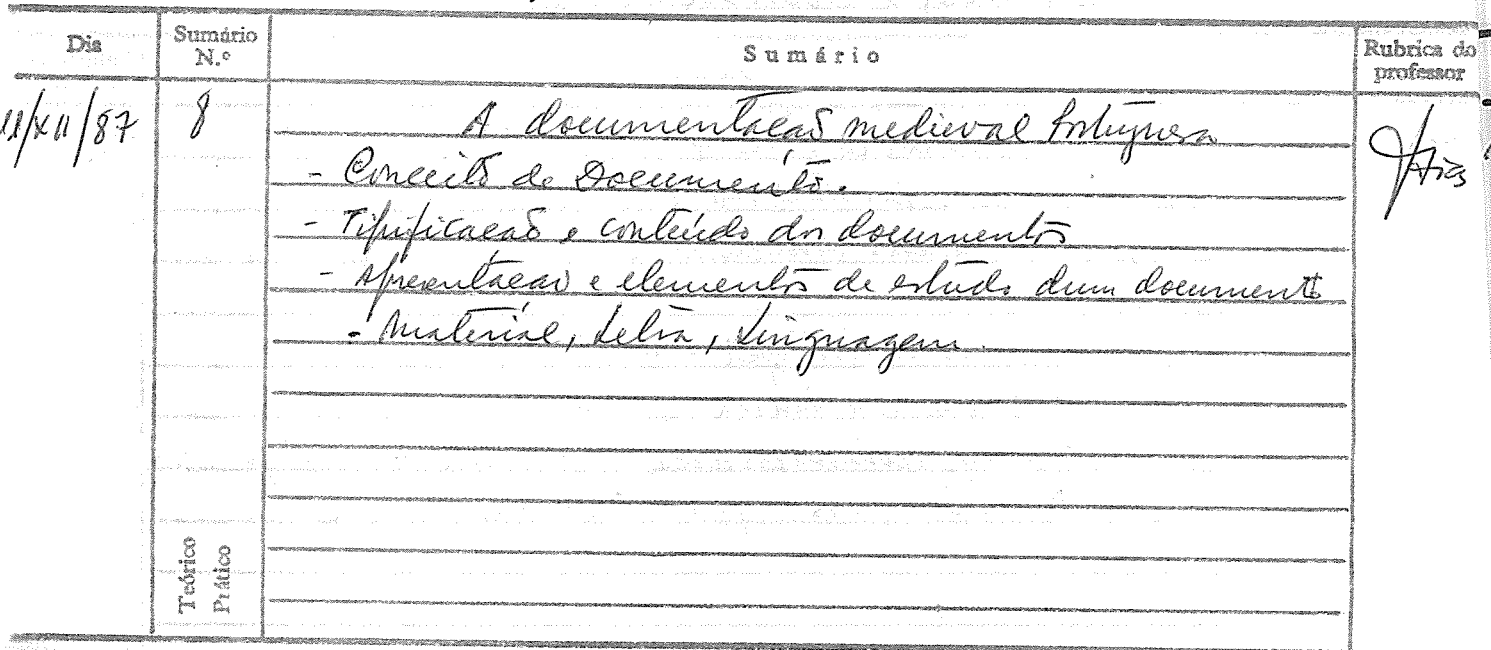 Dia
Sumário N.º
Sumário
Rubrica do professor
11/XII/87
8
A documentação medieval Portuguesa
- Conceito de Documento.
- Tipificação e conteúdo dos documentos
- Apresentação e elementos de estudo dum documento
- Material, Letra, Linguagem.
Teórico
Prático